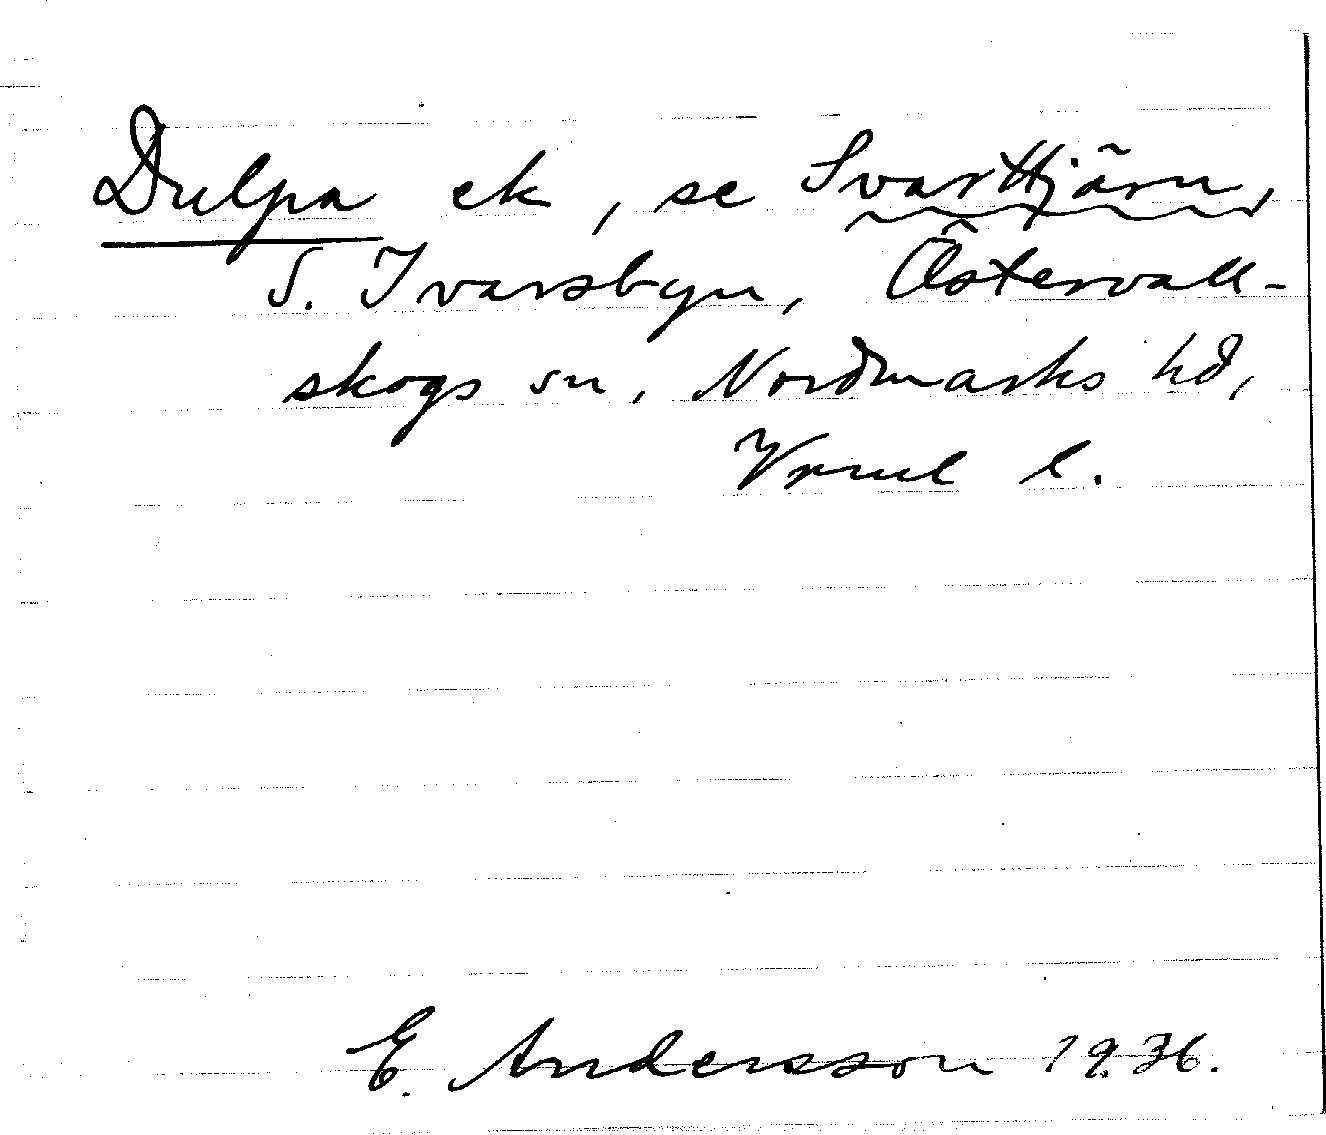 Dulpa ek, se Svarttjärn,
S. Ivarsbyn, Östervall-
skogs sn, Nordmarks hd,
Vrml l.
E. Andersson 1936.